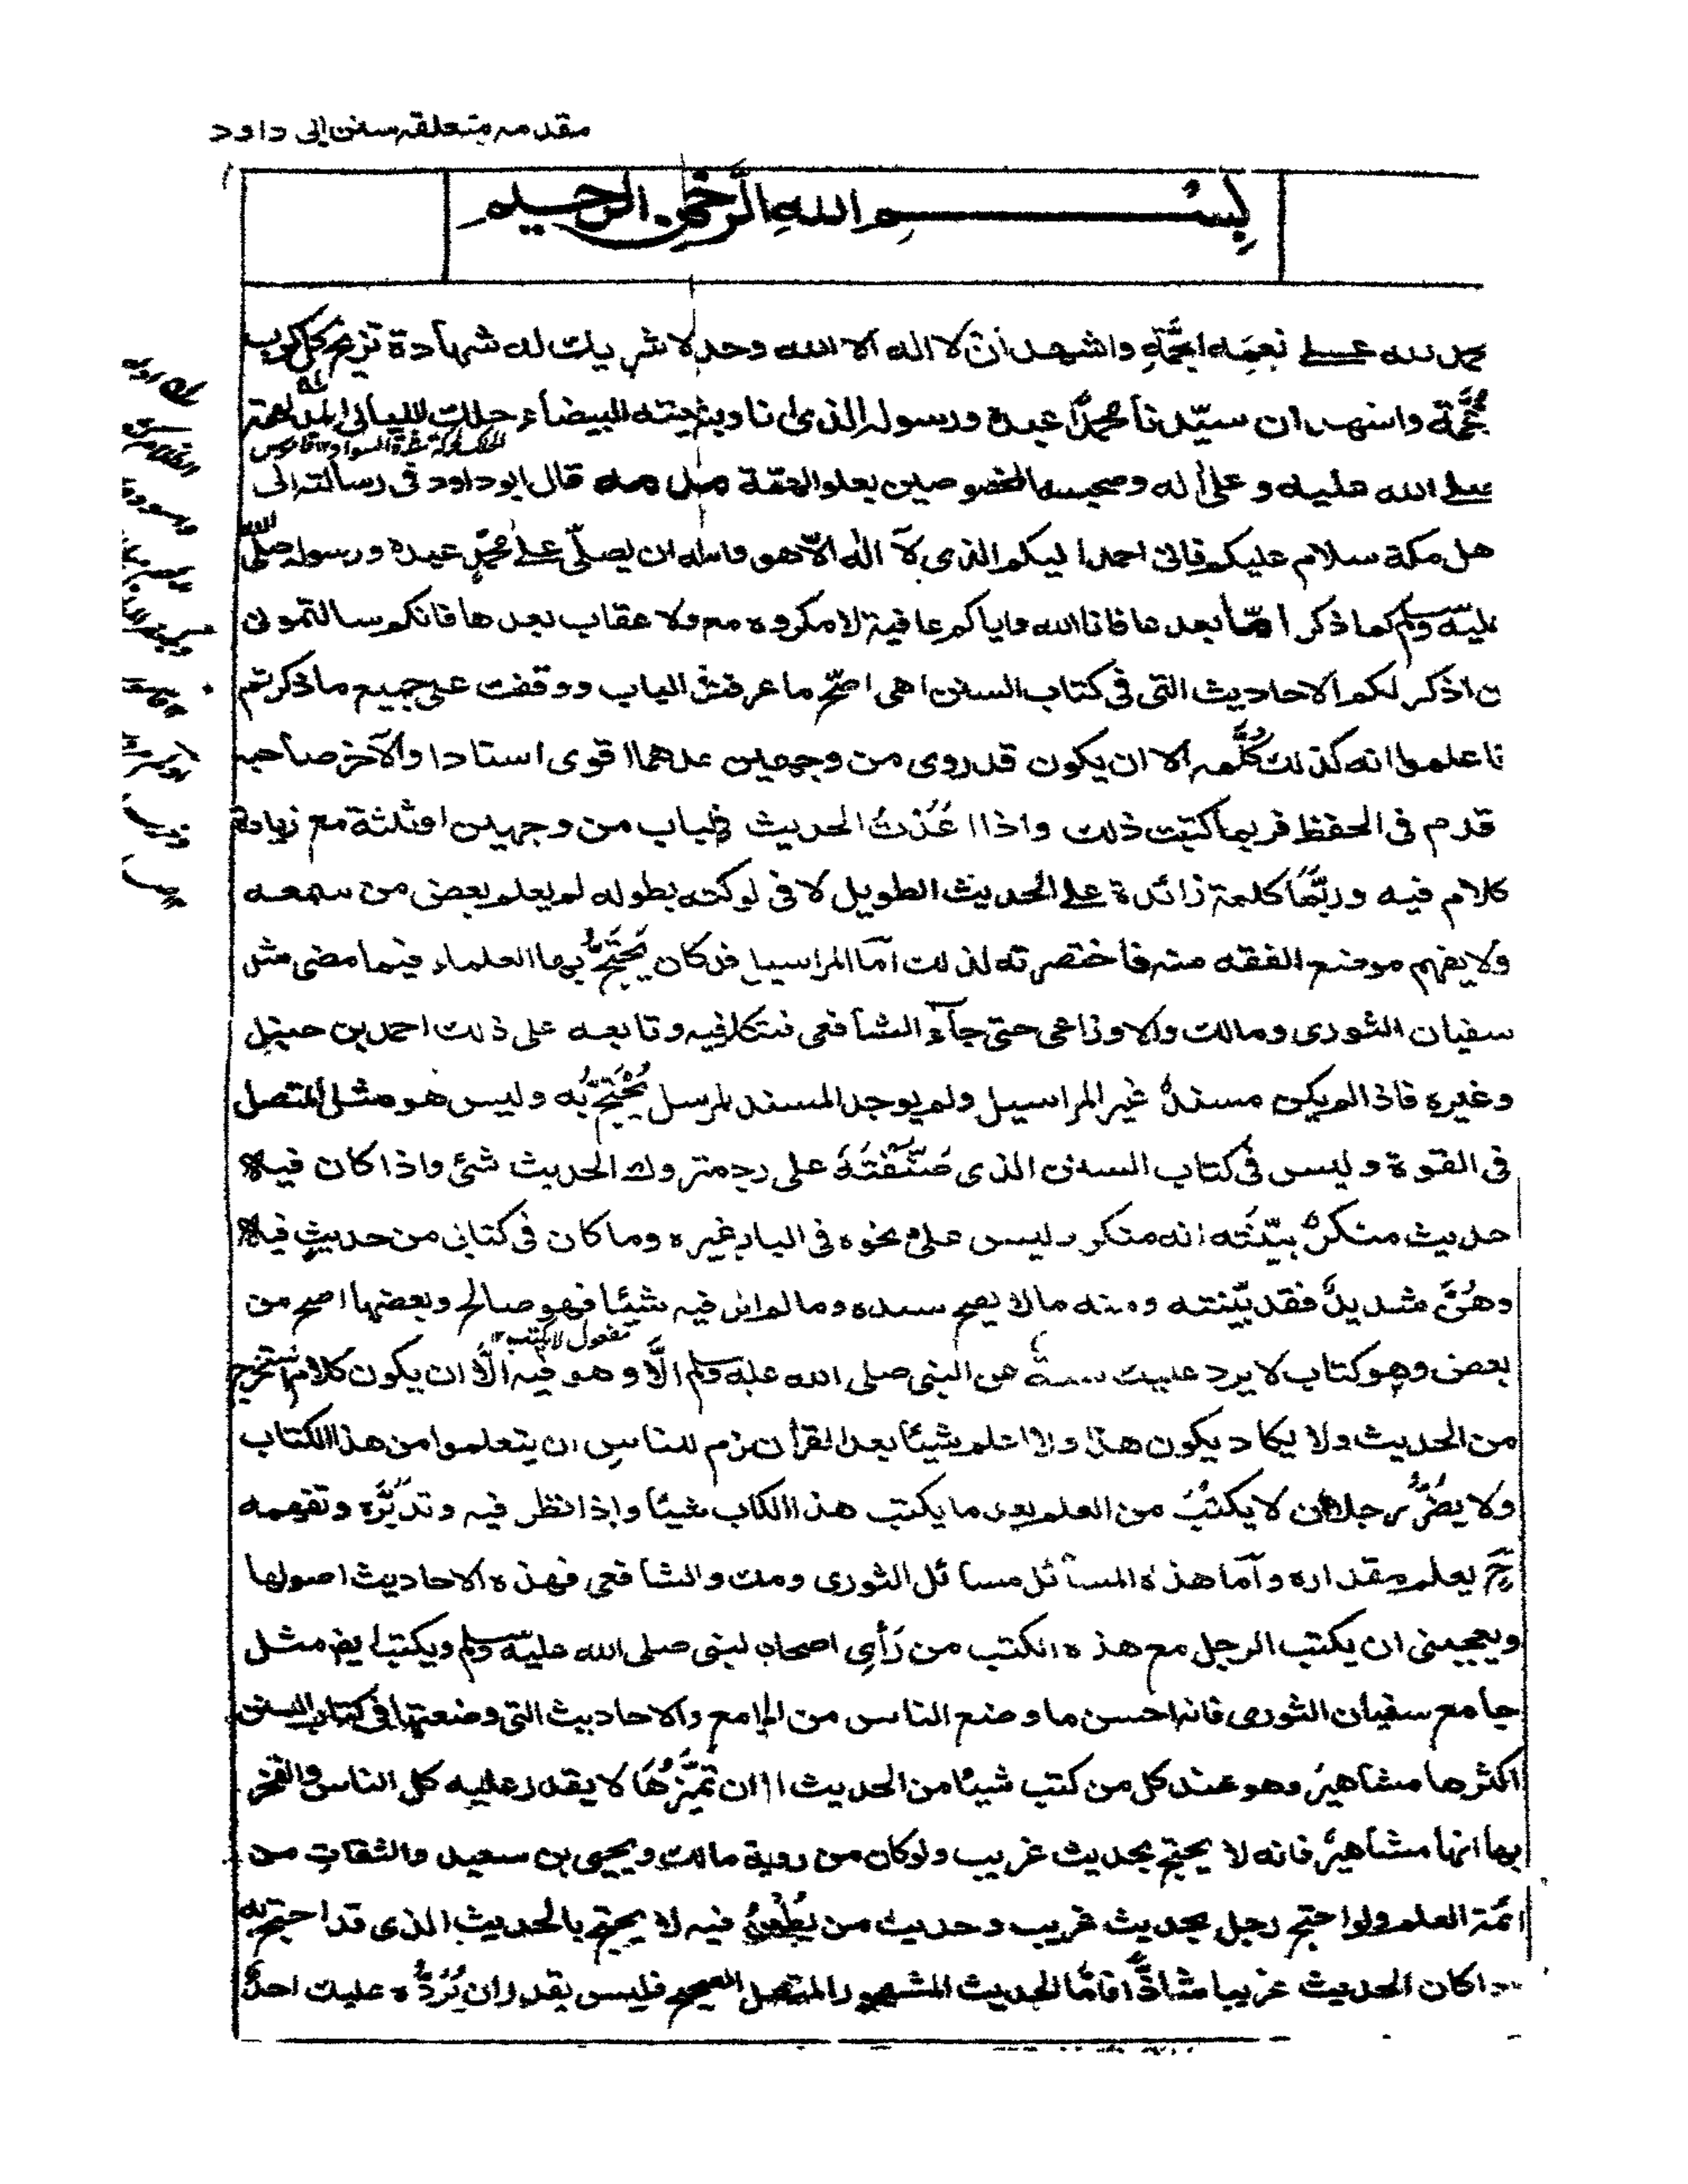 مقدمہ متعلقہ سنن ابی داود
بسم الله الرحمن الرحيم
حمد لله على نعمه الجمة واشهد ان لا اله الا الله وحد لا شريك له شهادة تزيح كل كرب
واشهد ان سيّدنا محمدًا عبده ورسوله الذي انا وبشريعته البيضاء حلك الليالي
صلى الله عليه وعلى أله وصحبه المخصوصين بعلو الهمّة قال ابو داود فى رسالته الى
هل مكة سلام عليكم فانى احمد اليكم الذى لآ اله الّا هو واسأله ان يصلّى على محمّدٍ عبده ورسوله صلى الله
عليه وسلم كما ذكر امّا بعد عافانا الله واياكم عافية لا مكروه مع ولا عقاب بعدها فانكم سالتمونى
ن اذكر لكم الاحاديث التى فى كتاب السنن اهى اصحّ ما عرفت الباب ووقفت على جميع ما ذكرتم
فاعلموا انه كذلك كُلُّه الا ان يكون قد روى من وجهين احدهما اقوى اسنادا والآخر صاحبه
قدم فى الحفظ فربما كتبت ذلك واذا اعَدْتُ الحديث فى الباب من وجهين او ثلثة مع زيادة
كلام فيه وربّما كلمة زائدة على الحديث الطويل لانى لو كتبته بطوله لم يعلم بعض من سمعه
ولا يفهم موضع الفقه منه فاختصرته لذلك امّا المراسيل فقد كان يَحْتَجُّ بها العلماء فيما مضى مثل
سفيان الثورى ومالك والاوزاعى حتى جآء الشافعى فتكلم فيه وتابعه على ذلك احمد بن حنبل
وغيره فاذا لم يكن مسندٌ غير المراسيل ولم يوجد المسند فالمرسل يُحْتَجُّ به وليس هو مثل المتصل
فى القوة وليس فى كتاب السنن الذى صَنَّفْتَهُ على رجل متروك الحديث شئ واذا كان فيه
حديث منكرٌ بيّنته انه منكر وليس على نحوه فى الباب غيره وما كان فى كتابى من حديثٍ فيه
وهْنٌ شديدٌ فقد بيّنته ومنه ما لا يصح سنده وما لم اذكر فيه شيئا فهو صالح وبعضها اصح من
مفعول لا يكتب
بعض وهو كتاب لا يرد عليك سنة عن النبى صلى الله عليه وسلم الّا وهو فيه الّا ان يكون كلام استخرج
من الحديث ولا يكاد يكون هذا ولا اعلم شيئا بعد القرأن الزم للناس ان يتعلموا من هذا الكتاب
ولا يضُرُّ رجلا ان لا يكتبُ من العلم بعد ما يكتب هذا الكتاب شيئا وإذا نظر فيه وتدبَّرَه وتفهمه
ح يعلم مقداره وأمّا هذه المسائل مسائل الثورى ومالك والشافعى فهذه الاحاديث اصولها
ويعجبنى ان يكتب الرجل مع هذه الكتب من رَأىِ اصحاب النبى صلى الله عليه وسلم ويكتب ايضا مثل
جامع سفيان الثورى فانه احسن ما وضع الناس من الجوامع والاحاديث التى وضعتها فى كتاب السنن
اكثرها مشاهيرُ وهو عند كل من كتب شيئا من الحديث الا ان تميّزُهَا لا يقدر عليه كل الناس والفخر
بها انها مشاهيرُ فانه لا يحتج بحديث غريب ولو كان من رواية مالك ويحيى بن سعيد والثقات من
ائمة العلم ولو احتج رجل بحديث غريب وحديث من يُطْعَنُ فيه لا يحتج بالحديث الذى قد احتج به
اذا كان الحديث غريبا شاذًّا فامّا الحديث المشهور المتصل الصحيح فليس يقدر ان يَرُدُّه عليك احدٌ